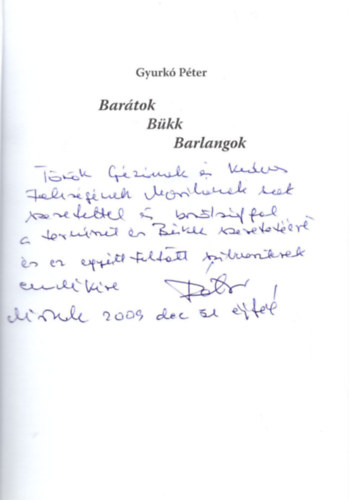 Gyurkó Péter
Barátok
Bükk
Barlangok
Török Gézának és kedves
feleségének Mosikának sok
szeretettel és barátsággal
a természet és Bükk szeretetéért
és az együtt töltött szilveszterek
emlékére Péter
2009 dec 31 éjfél